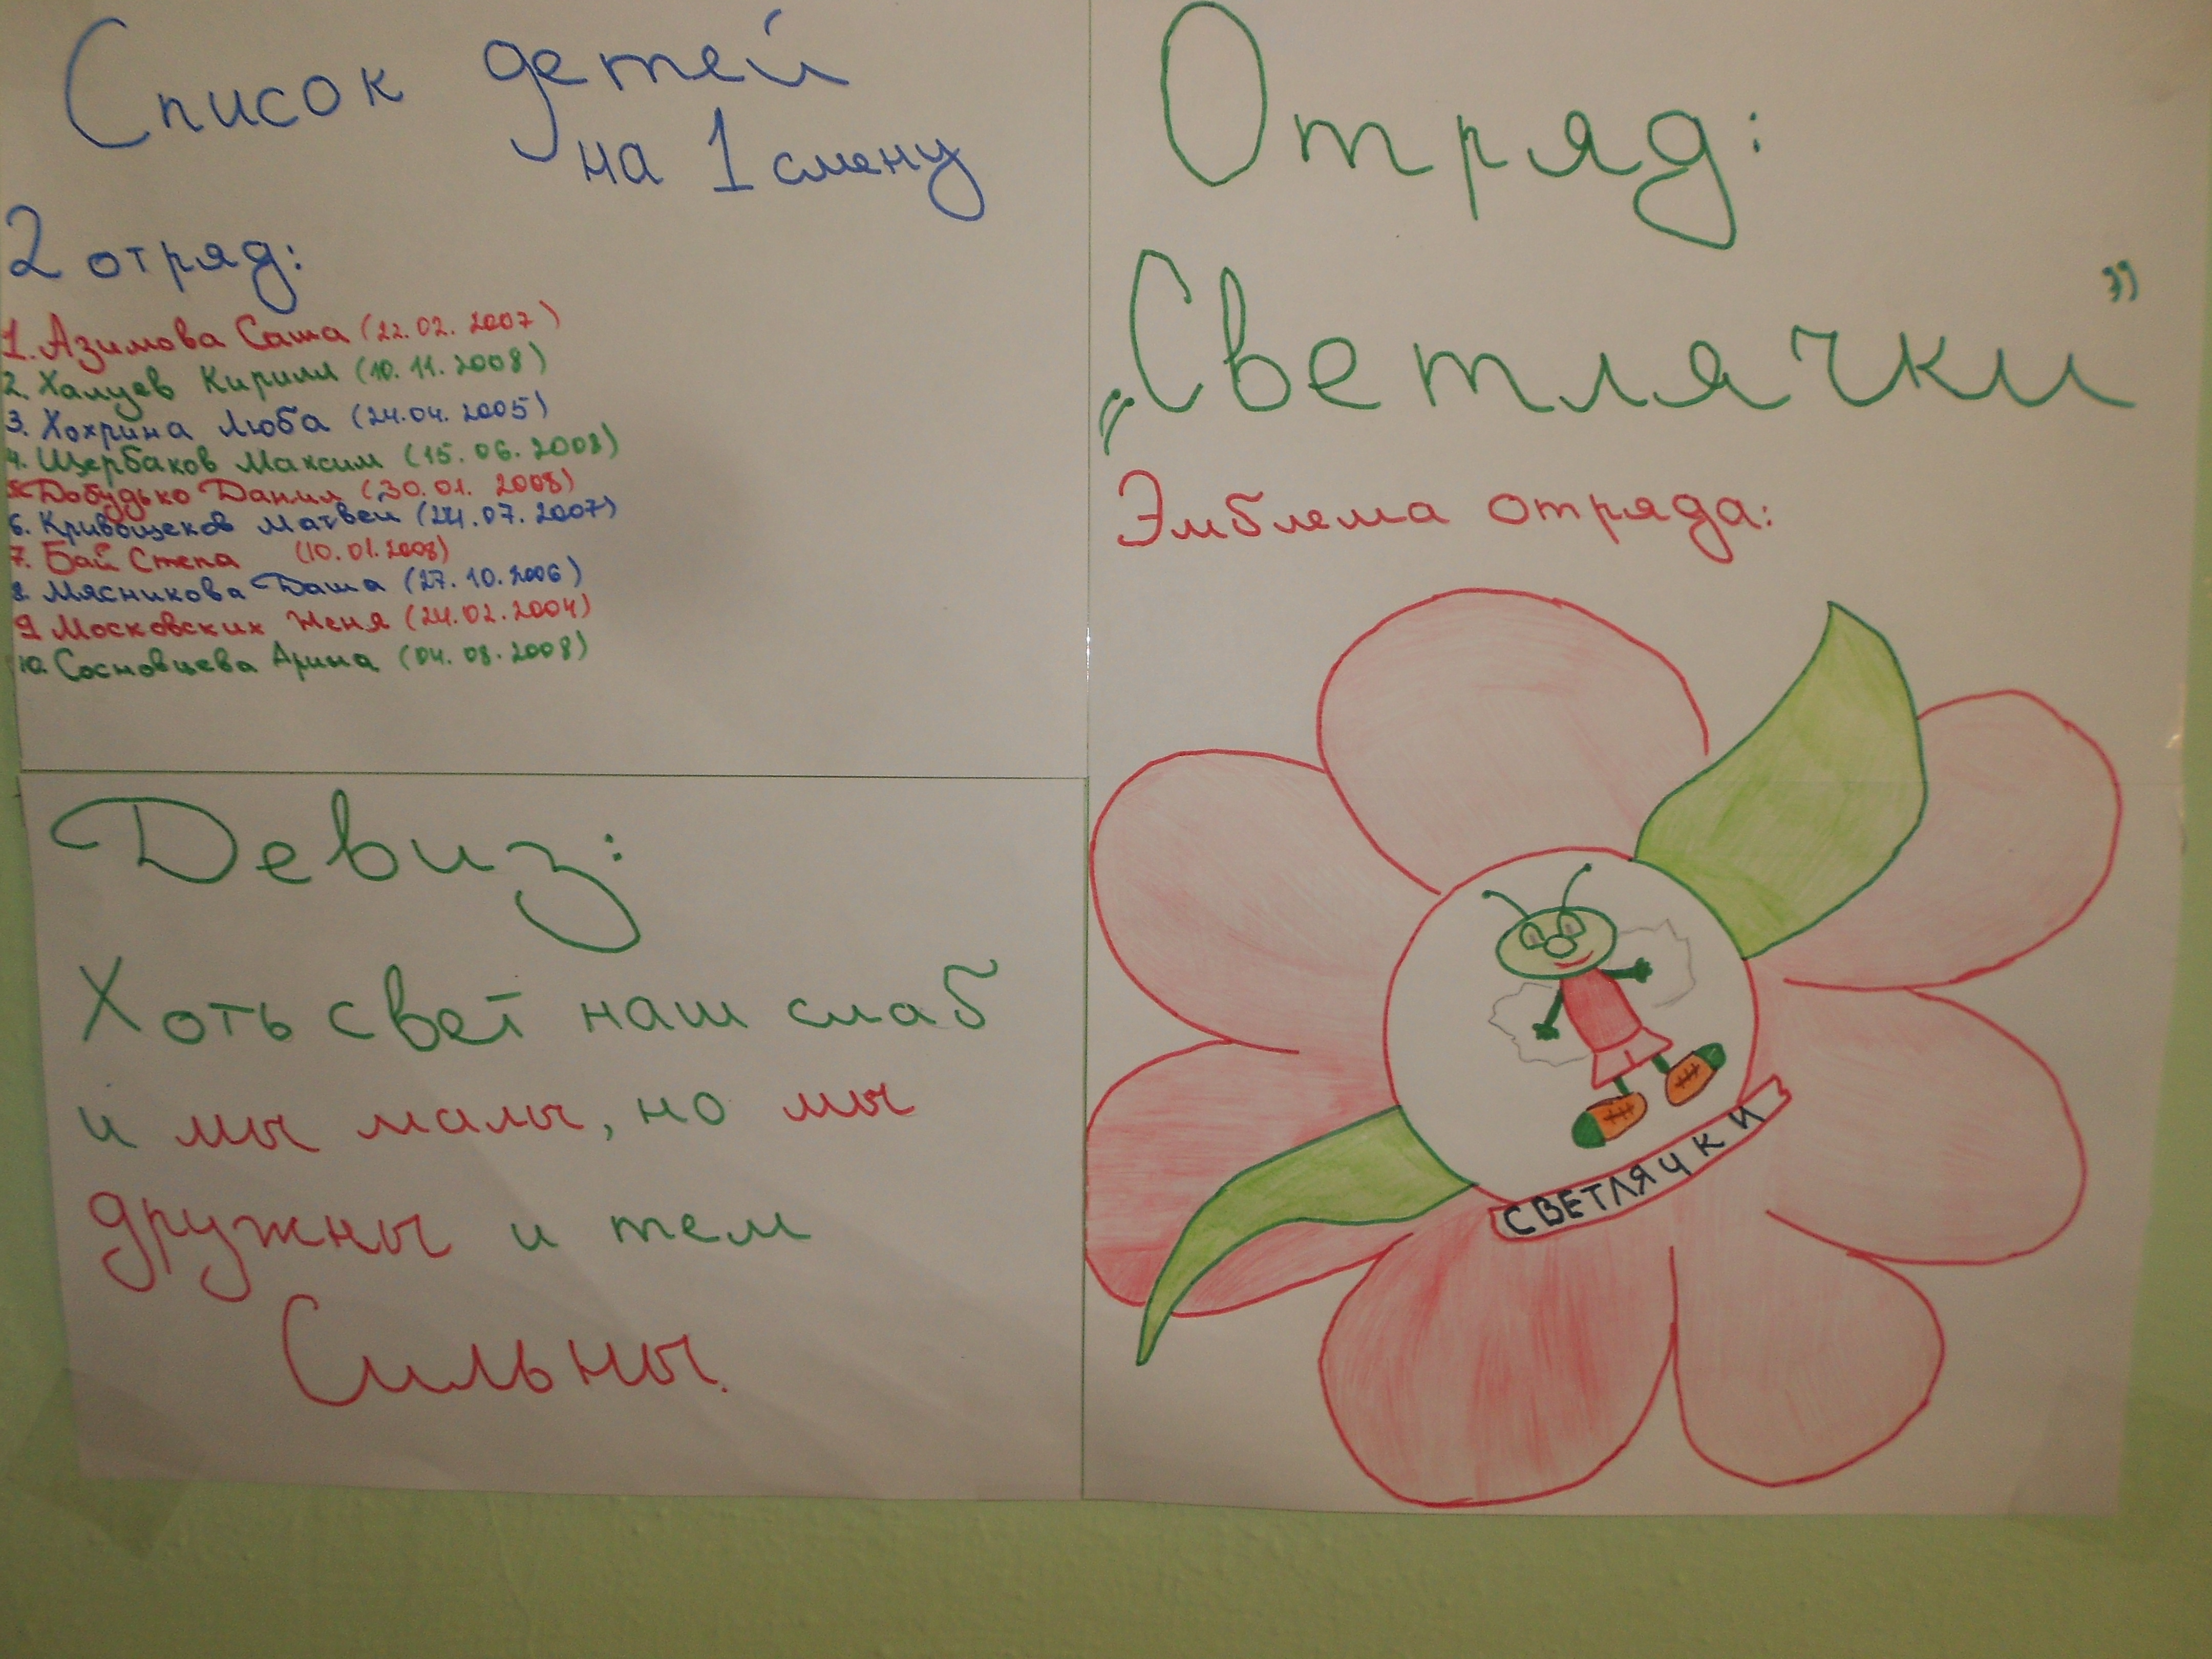 Список детей
на 1 смену
2 отряд:
1. Азимова Саша (22.02.2007)
2. Халуев Кирилл (10.11.2008)
3. Хохрина Люба (24.04.2005)
4. Щербаков Максим (15.06.2008)
5. Добудько Данил (30.01.2008)
6. Кривощеков Матвей (24.07.2007)
7. Бай Степа (10.01.2008)
8. Мясникова Даша (27.10.2006)
9 Московских Женя (24.02.2004)
10. Сосновцева Арина (04.08.2008)
Девиз:
Хоть свет наш слаб
и мы малы, но мы
дружны и тем
Сильны.
Отряд:
„Светлячки”
Эмблема отряда:
СВЕТЛЯЧКИ